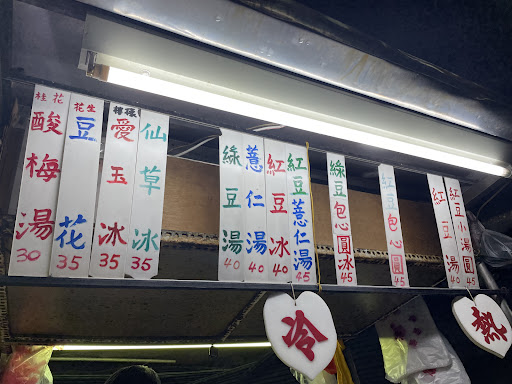 桂花酸梅湯 30
花生豆花 35
檸檬愛玉冰 35
仙草冰 35
綠豆湯 40
薏仁湯 40
紅豆冰 40
紅豆薏仁湯 45
綠豆包心圓冰 45
紅豆包心圓 45
紅豆湯 40
紅豆小湯圓 45
冷
熱